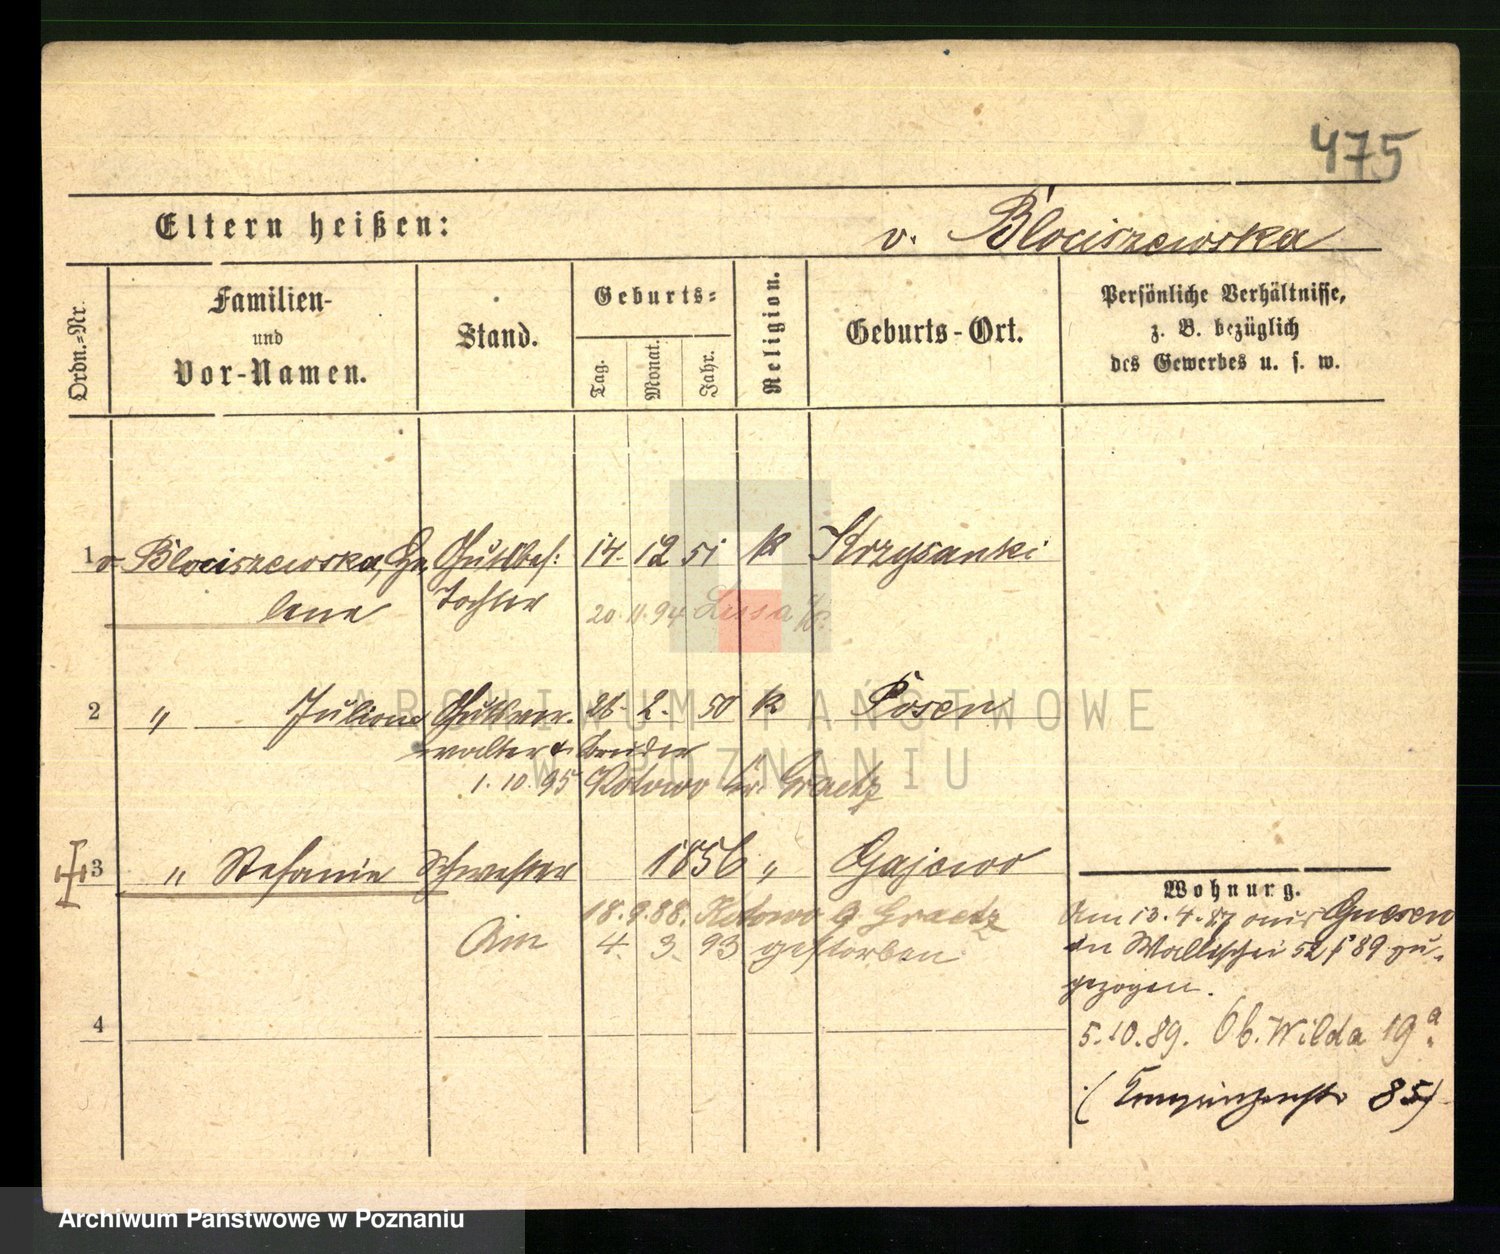 475
Eltern heißen:
v. Blociszewska
Ordn.-Nr.
Familien-
und
Vor-Namen.
Stand.
Geburts-
Tag.
Monat.
Jahr.
Religion.
Geburts-Ort.
Persönliche Verhältnisse,
z. B. bezüglich
des Gewerbes u. s. w.
1 v. Blociszewska, He- Gutsbes: 14. 12 51 k Krzyzanki
lene Tochter
20. 11. 94 Lissa
2 " Julian Gutsver- 26. 2. 50 k Posen
walter & Bruder
1. 10. 95 Kotowo Kr. Graetz
3 " Stefanie Schwester 1856 " Gajewo
18. 9. 88. Kotowo Graetz
Am 4. 3. 93 gestorben
4
Wohnung.
Am 13. 4. 87 aus Gnesen
in Wallischei 52/89 zu-
gezogen.
5. 10. 89. Ob. Wilda 19a.
(Kronprinzenstr. 85)
ARCHIWUM PAŃSTWOWE
W POZNANIU
Archiwum Państwowe w Poznaniu